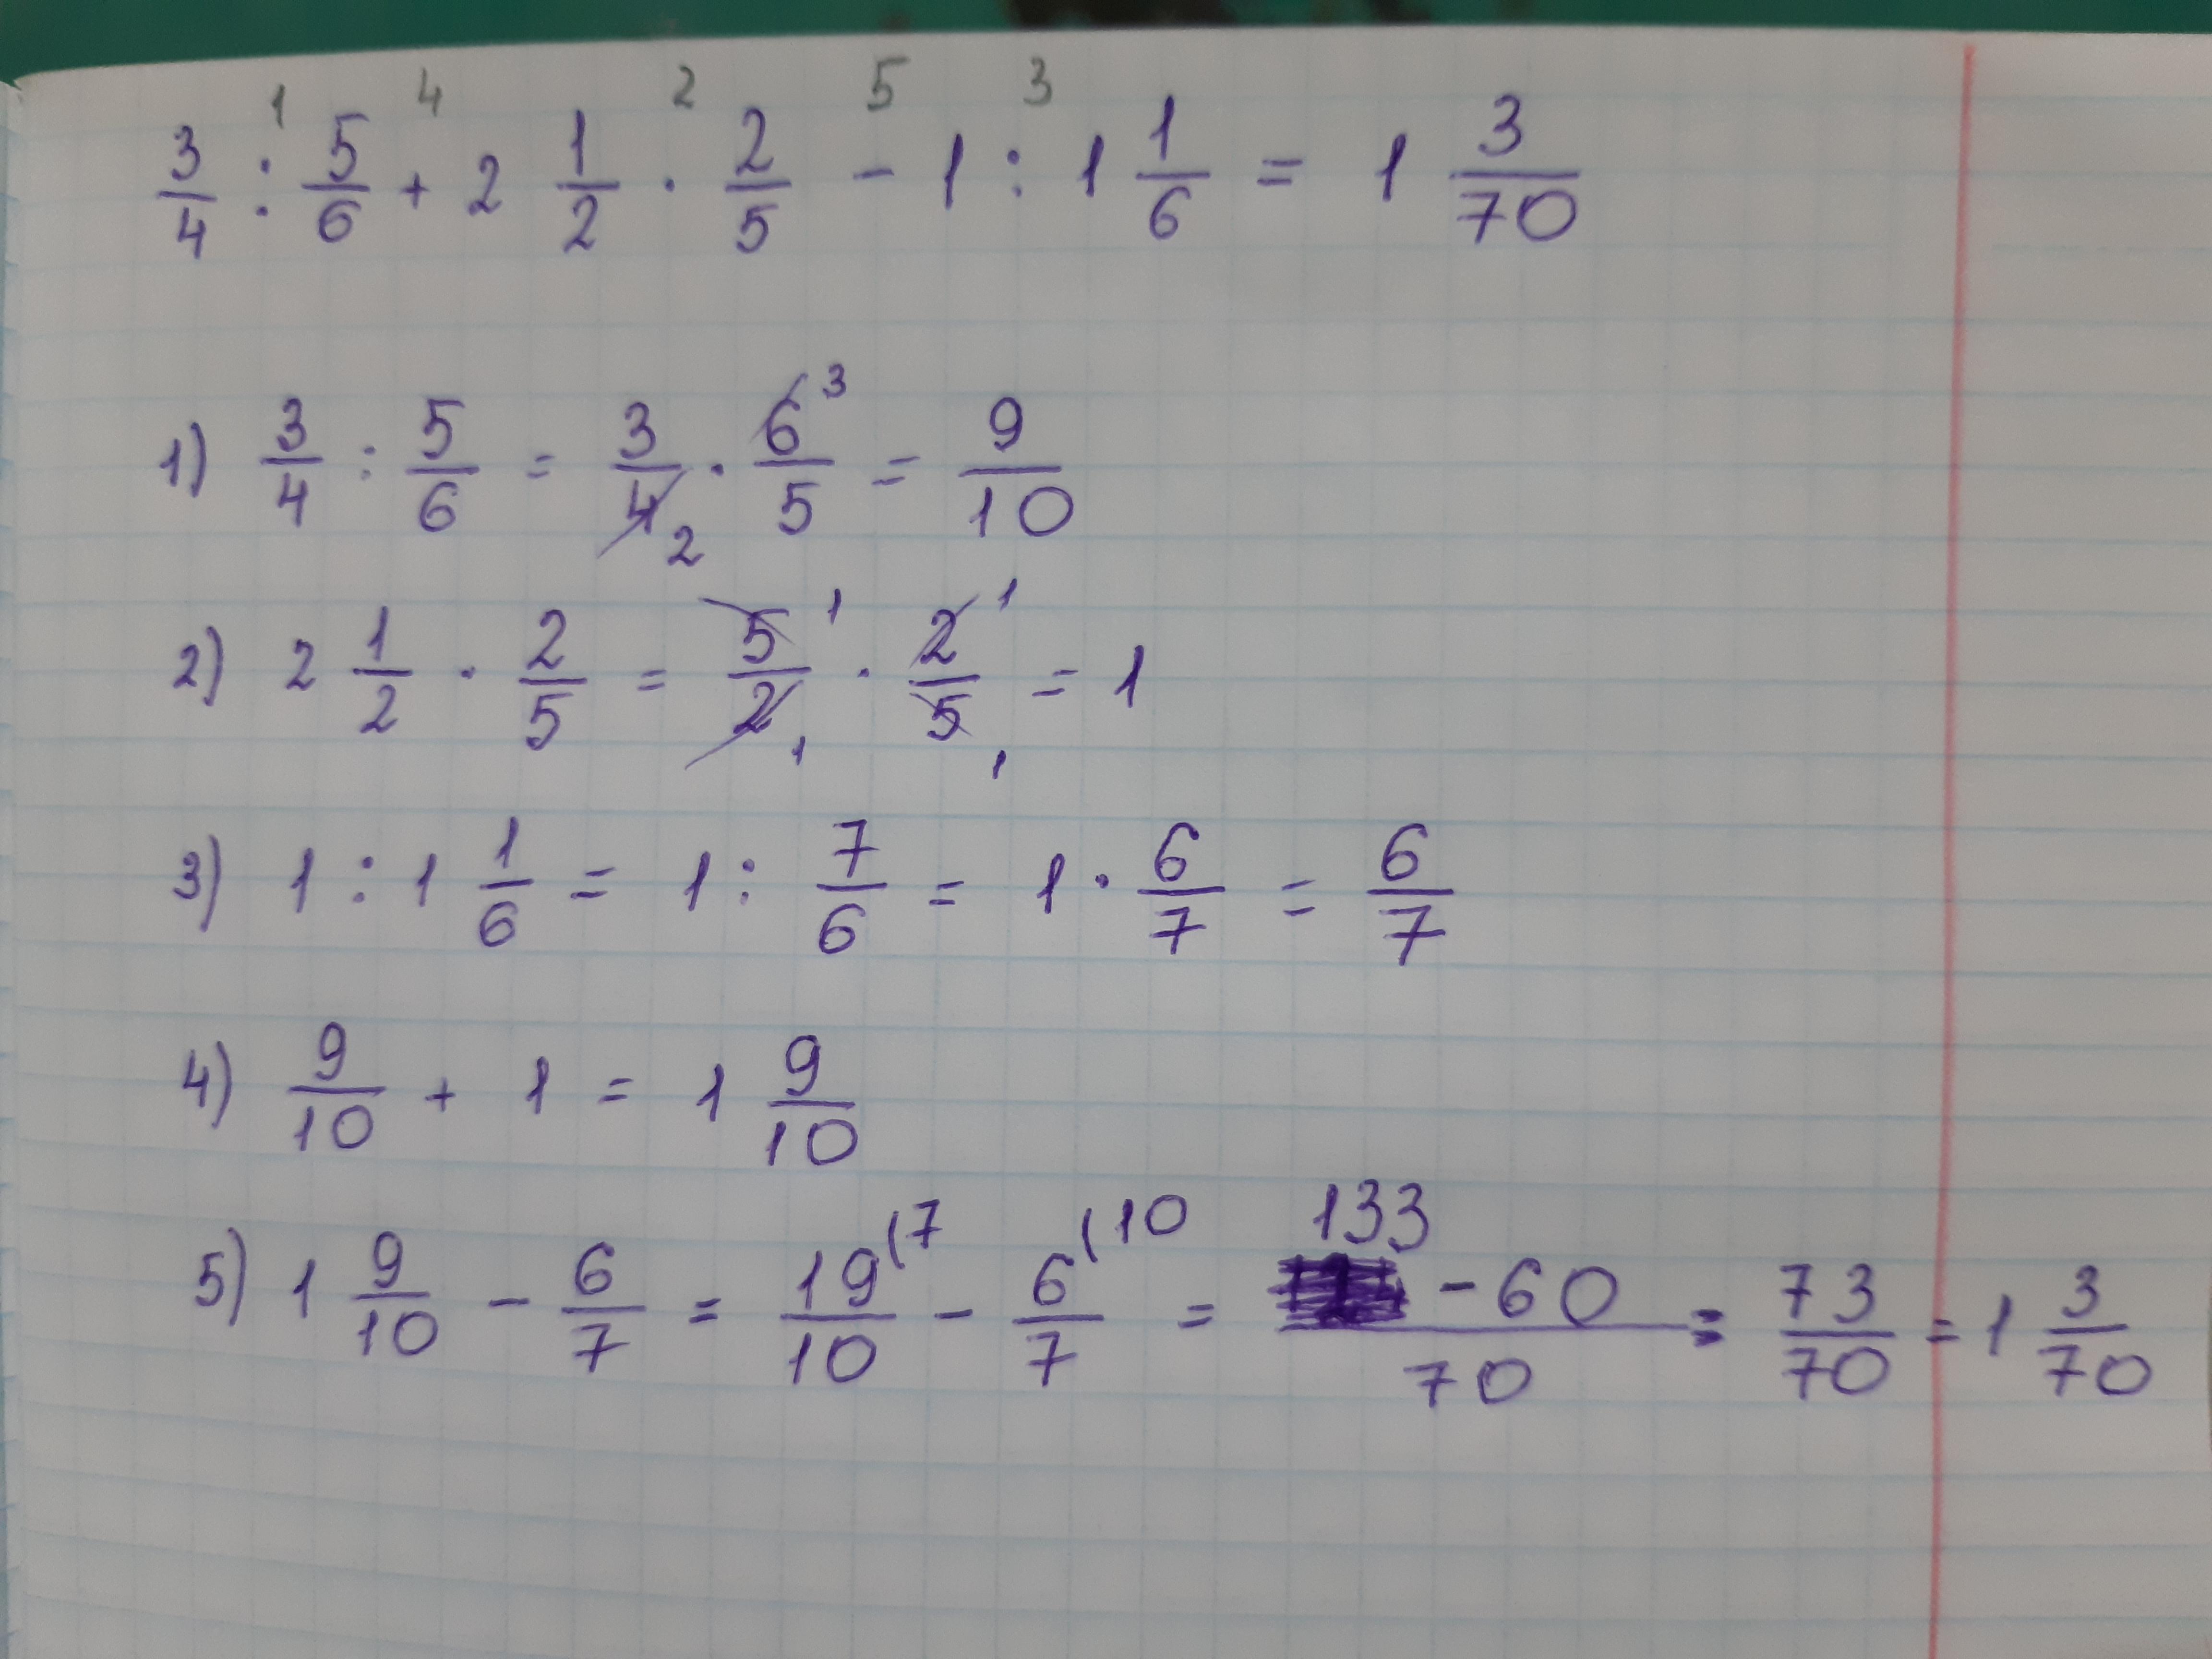 1 4 2 5 3
3/4 : 5/6 + 2 1/2 · 2/5 - 1 : 1 1/6 = 1 3/70
1) 3/4 : 5/6 = 3/4 2 · 6 3/5 = 9/10
2) 2 1/2 · 2/5 = 5 1/2 1 · 2 1/5 1 = 1
3) 1 : 1 1/6 = 1 : 7/6 = 1 · 6/7 = 6/7
4) 9/10 + 1 = 1 9/10
5) 1 9/10 - 6/7 = 19(7/10 - 6(10/7 = 133 - 60/70 = 73/70 = 1 3/70